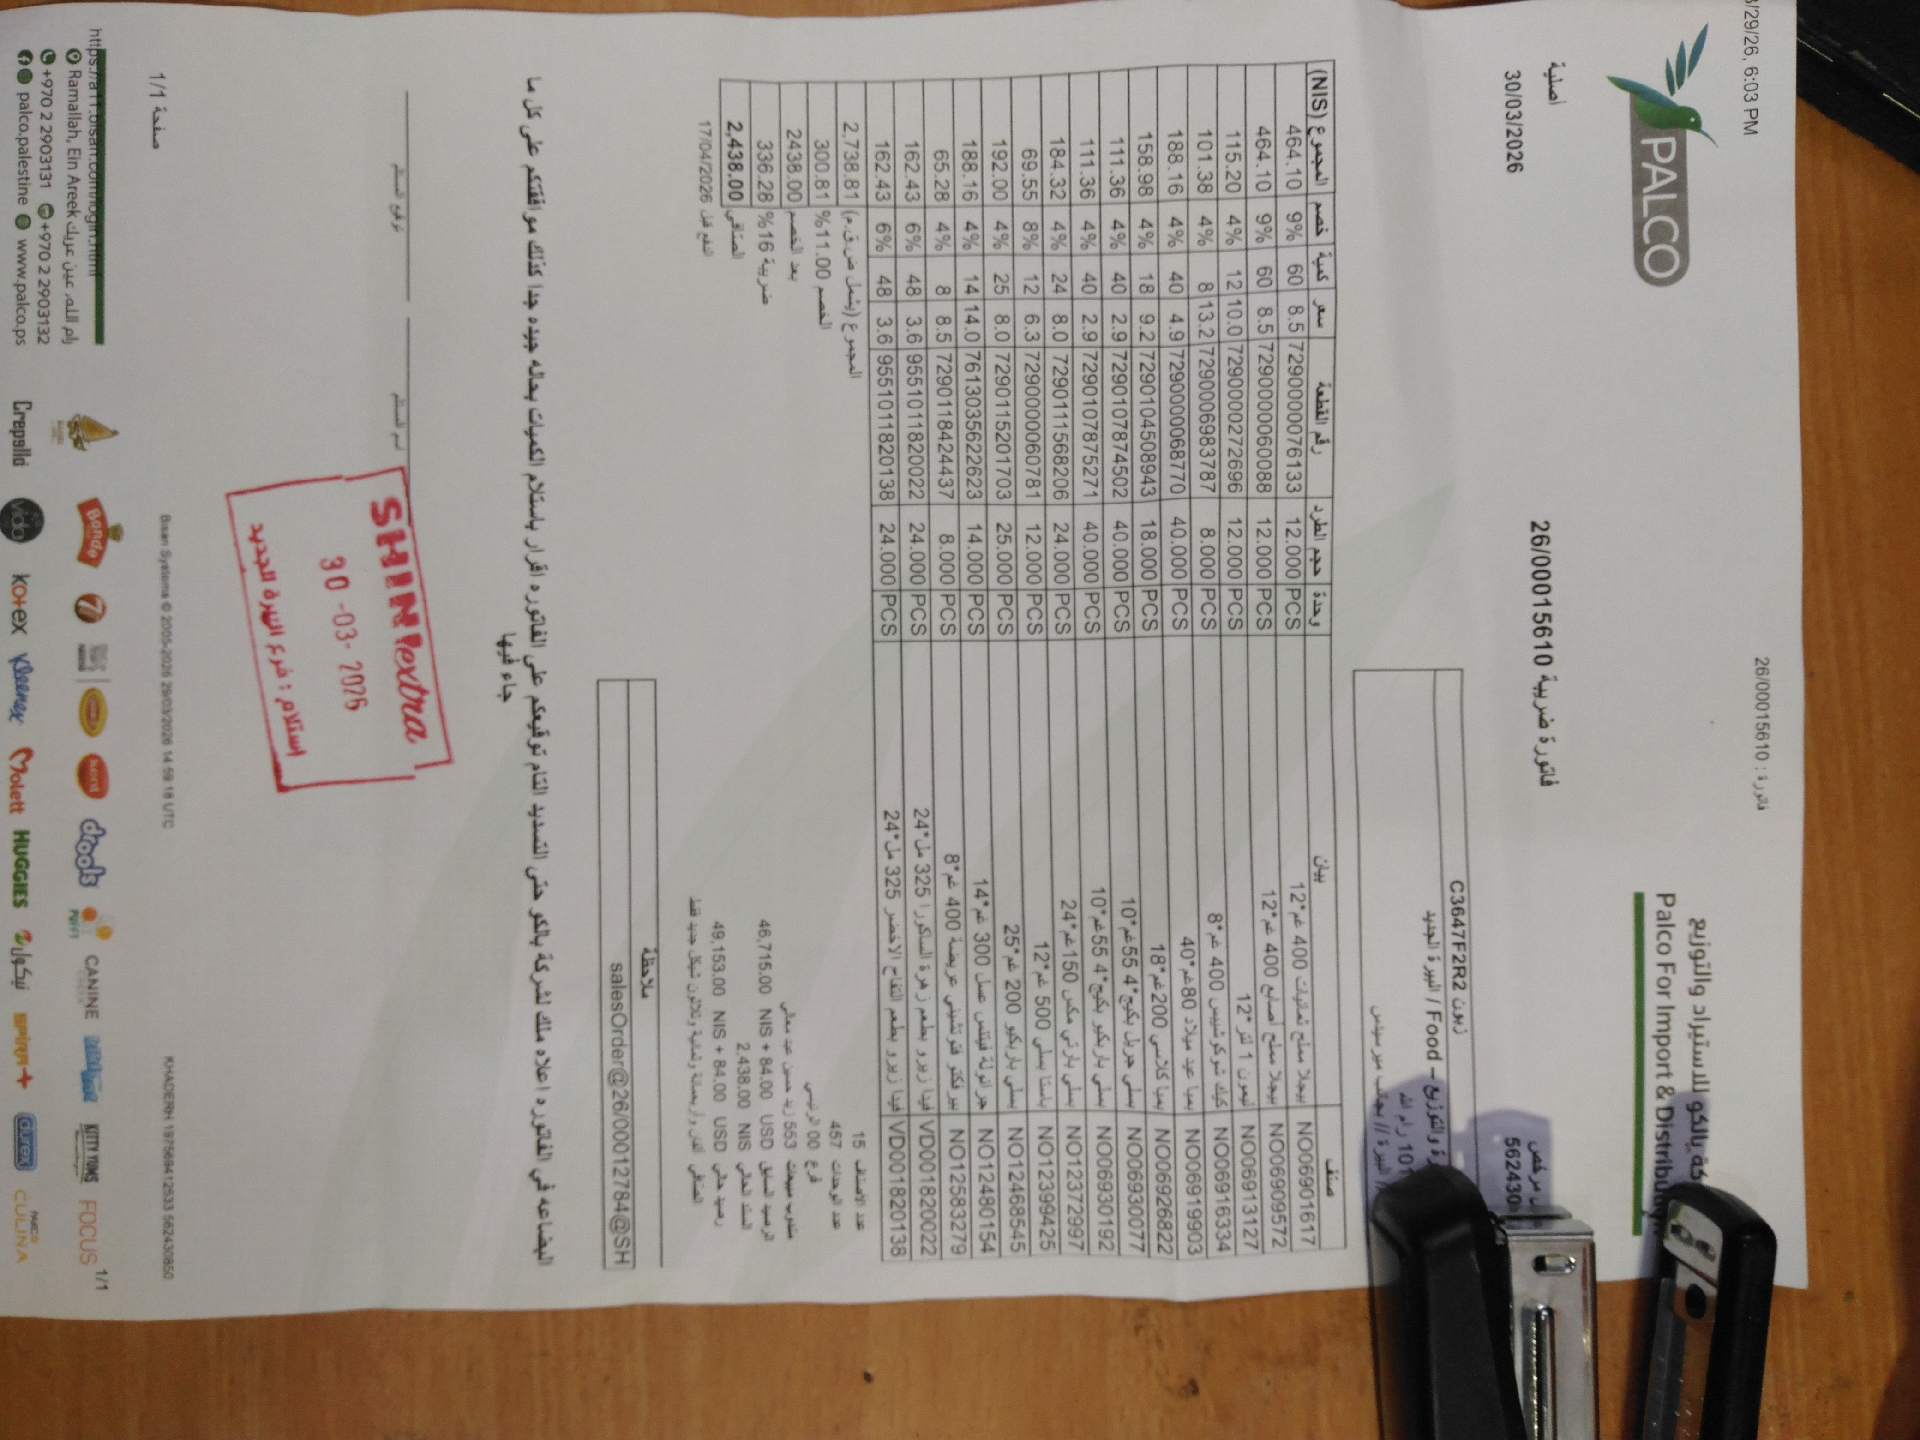 3/29/26, 6:03 PM
فاتورة : 26/00015610
PALCO
كة بالكو للاستيراد والتوزيع
Palco For Import & Distribution
أصلية
30/03/2026
فاتورة ضريبية 26/00015610
مرخص
562430
زبون C3647F2R2
Food – والتوزيع / البيرة الجديد
رام الله
البيرة // بجانب
صنف بيان وحدة حجم الطرد رقم القطعة سعر كمية خصم المجموع (NIS)
NO06901617 بيجلا مملح ثمانيات 400 غم*12 PCS 12.000 7290000076133 8.5 60 9% 464.10
NO06909572 بيجلا مملح أصابع 400 غم*12 PCS 12.000 7290000060088 8.5 60 9% 464.10
NO06913127 ليمون 1 لتر *12 PCS 12.000 7290000272696 10.0 12 4% 115.20
NO06916334 كيك شوكو شيبس 400 غم*8 PCS 8.000 7290006983787 13.2 8 4% 101.38
NO06919903 بمبا عيد ميلاد 80غم*40 PCS 40.000 7290000068770 4.9 40 4% 188.16
NO06926822 بمبا كلاسي 200غم*18 PCS 18.000 7290104508943 9.2 18 4% 158.98
NO06930077 بسلي جريل بكيج*4 55غم*10 PCS 40.000 7290107874502 2.9 40 4% 111.36
NO06930192 بسلي باربكيو بكيج*4 55غم*10 PCS 40.000 7290107875271 2.9 40 4% 111.36
NO12372997 بسلي بارتي مكس 150غم*24 PCS 24.000 7290111568206 8.0 24 4% 184.32
NO12399425 باستا بسلي 500 غم*12 PCS 12.000 7290000060781 6.3 12 8% 69.55
NO12468545 بسلي باربكيو 200 غم*25 PCS 25.000 7290115201703 8.0 25 4% 192.00
NO12480154 جرانولة فيتنس عسل 300 غم*14 PCS 14.000 7613035622623 14.0 14 4% 188.16
NO12583279 بيرفكتو فتوتشيني عريضة 400 غم*8 PCS 8.000 7290118424437 8.5 8 4% 65.28
VD001820022 فيدا زيرو بطعم زهرة الساكورا 325 مل*24 PCS 24.000 9551011820022 3.6 48 6% 162.43
VD001820138 فيدا زيرو بطعم التفاح الاخضر 325 مل*24 PCS 24.000 9551011820138 3.6 48 6% 162.43
عدد الاصناف 15
عدد الوحدات 457
فرع 00 الرئيسي
مندوب مبيعات 553 زيد حسين عبد معالي
الرصيد السابق 46,715.00 NIS + 84.00 USD
السند الحالي 2,438.00 NIS
رصيد حالي 49,153.00 NIS + 84.00 USD
الصافي ألفان وأربعمائة وثمانية وثلاثون شيكل جديد فقط
المجموع (يشمل ض.ق.م) 2,738.81
الخصم 11.00% 300.81
بعد الخصم 2438.00
ضريبة 16% 336.28
الصافي 2,438.00
الدفع قبل 17/04/2026
ملاحظة
salesOrder@26/00012784@SH
البضاعه في الفاتوره اعلاه ملك لشركة بالكو حتى التسديد التام توقيعكم على الفاتوره اقرار باستلام الكميات بحاله جيده جدا كذلك موافقتكم على كل ما
جاء فيها
اسم المستلم
توقيع المستلم
SHINI extra
30 -03- 2026
استلام : فرع البيرة الجديد
KHADERH 197569412533 562430850
Bisan Systems © 2005-2026 29/03/2026 14:59:18 UTC
صفحة 1/1
https://a11.bisan.com/login.html
1/1
Ramallah, Ein Areek رام الله, عين عريك
+970 2 2903131 +970 2 2903132
palco.palestine www.palco.ps
Bondo
7
kent
drools
PUFFY
CANINE
KITTY YUMS
FOCUS
Crepslld
vida
Kotex
Kleenex
Molett
HUGGIES
نيكول
spirit
durex
PANCO
CULINA